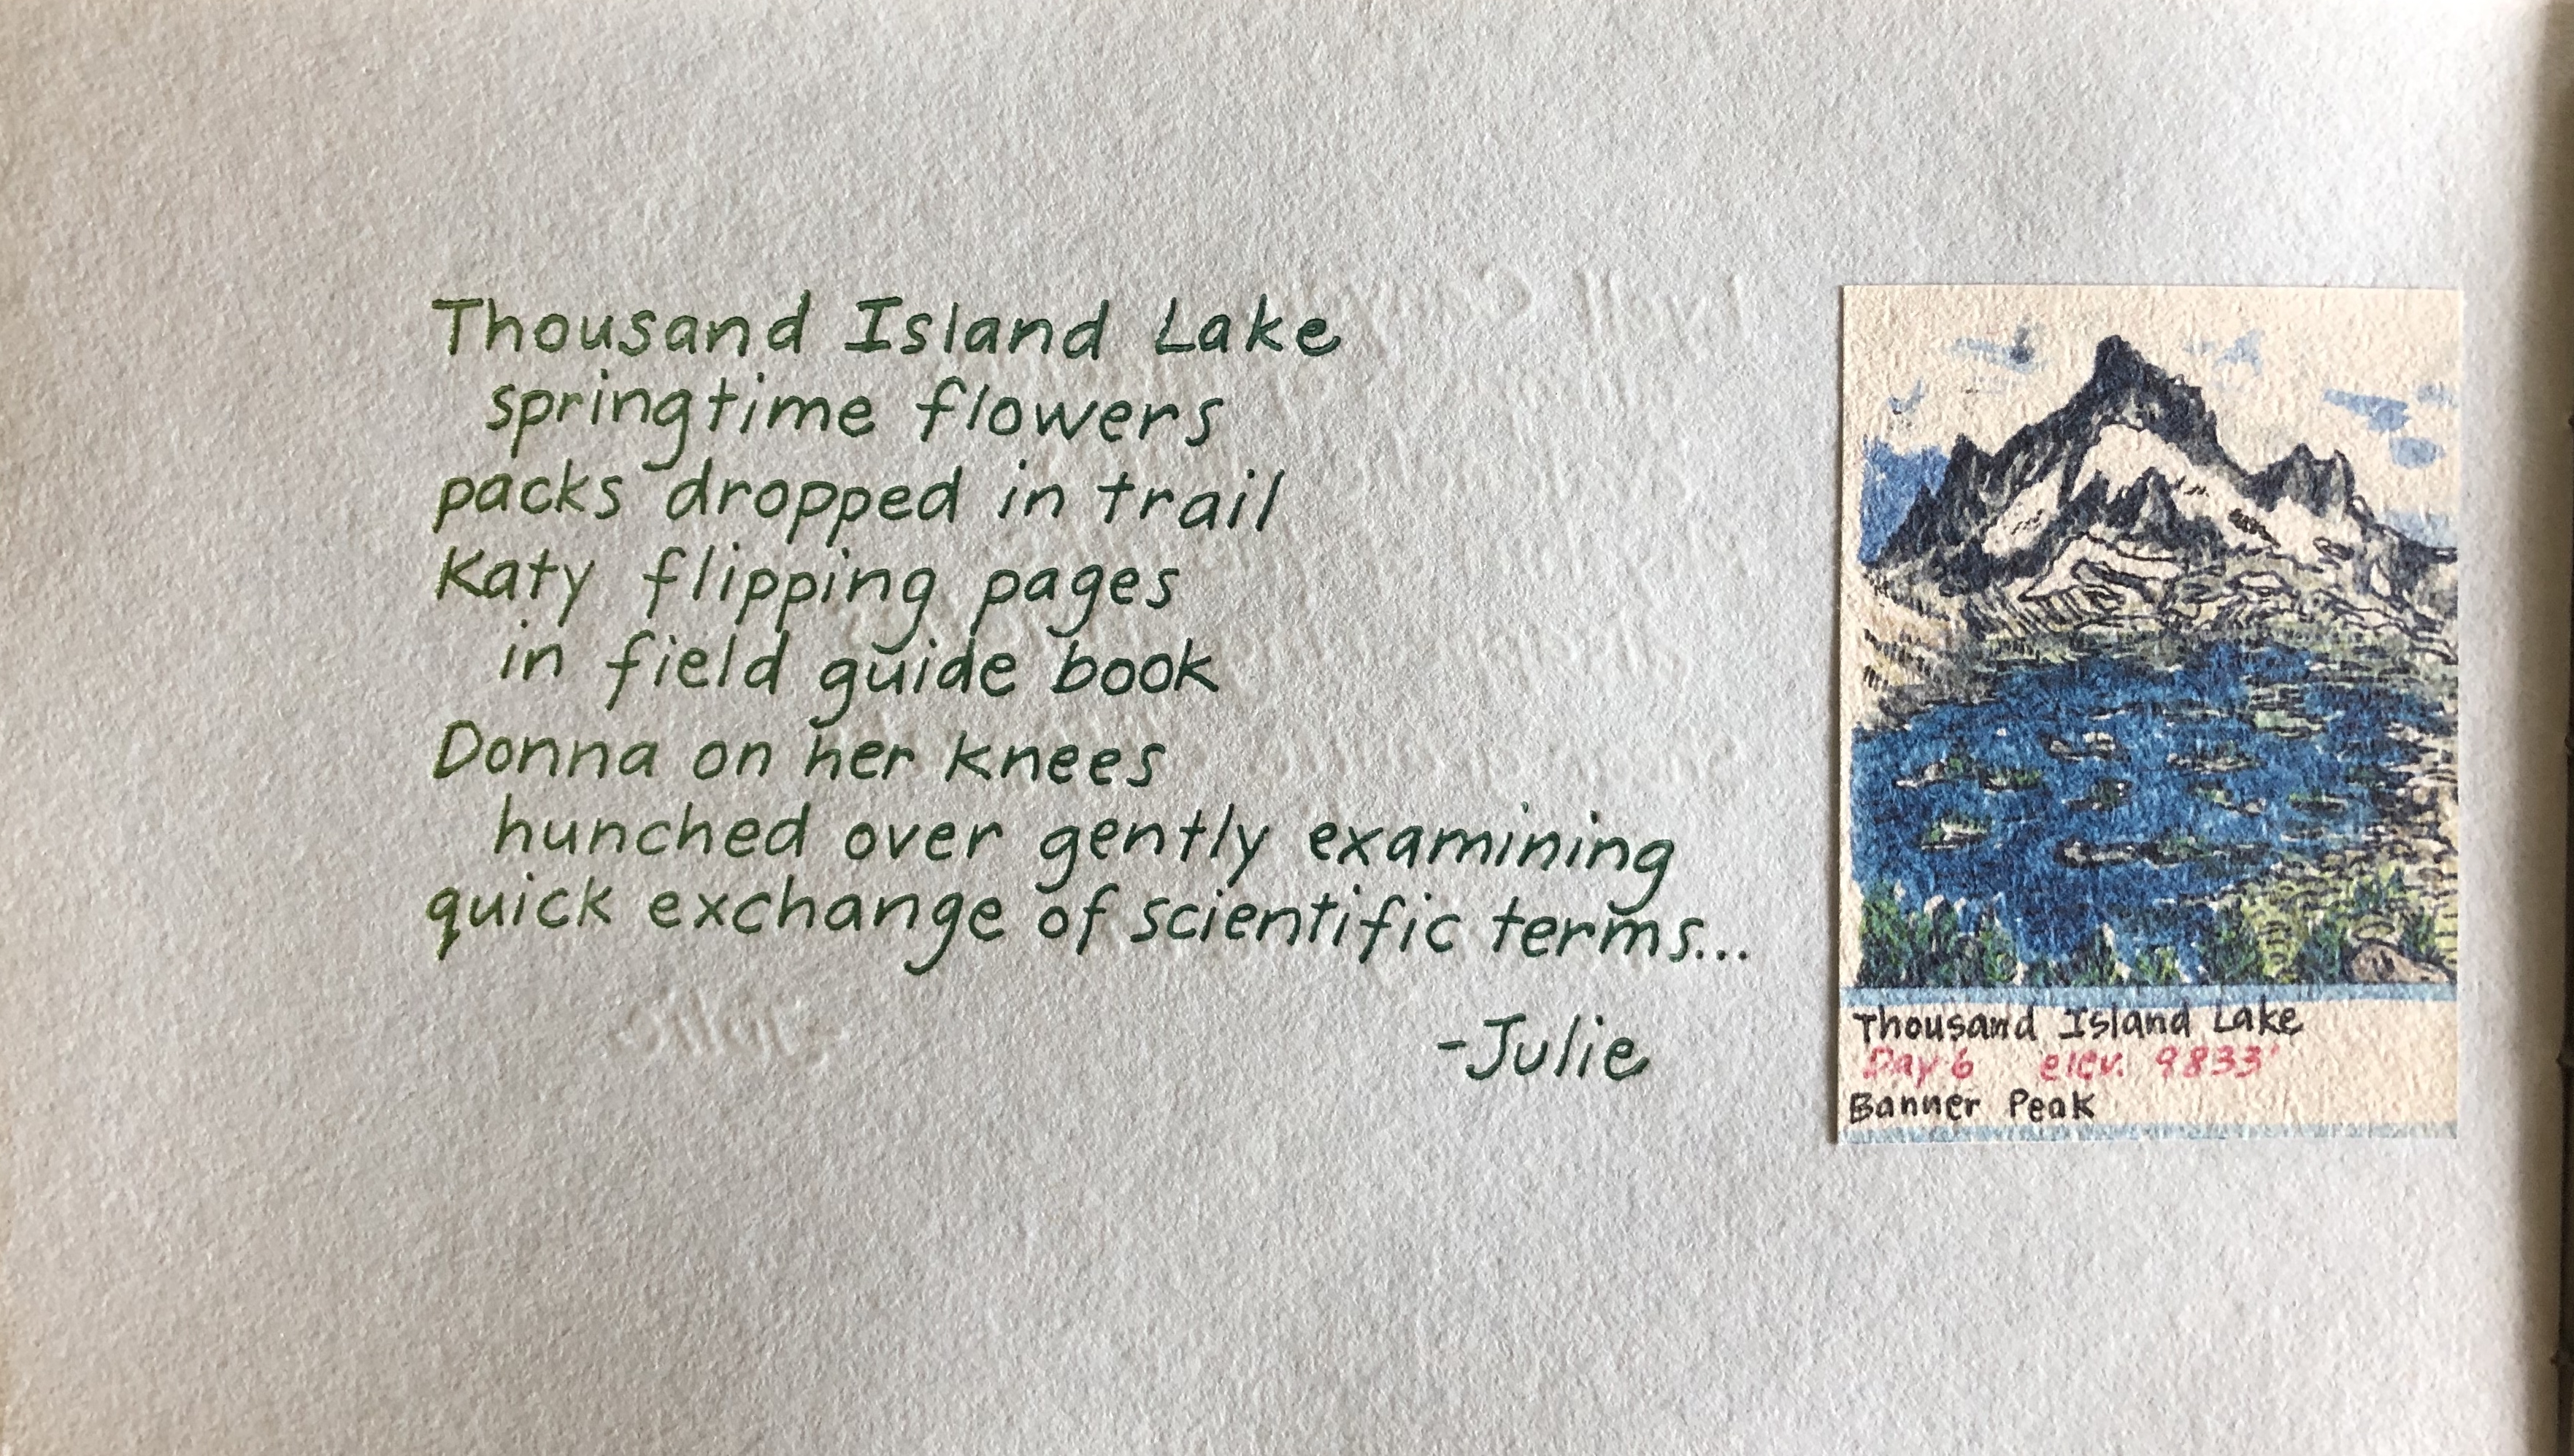 Thousand Island Lake
springtime flowers
packs dropped in trail
Katy flipping pages
in field guide book
Donna on her knees
hunched over gently examining
quick exchange of scientific terms...
-Julie
Thousand Island Lake
Day 6 elev. 9833'
Banner Peak